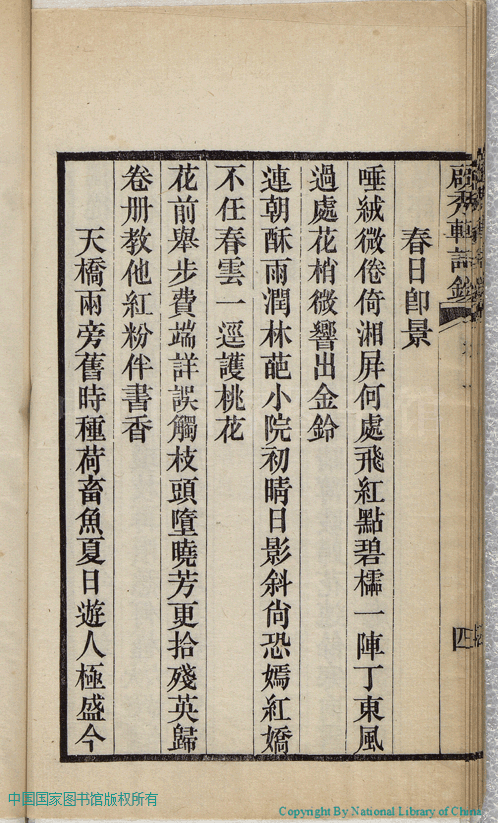 春日即景
唾絨微倦倚湘屏何處飛紅點碧櫺一陣丁東風
過處花梢微響出金鈴
連朝酥雨潤林葩小院初晴日影斜尙恐嫣紅嬌
不任春雲一逕護桃花
花前舉步費端詳誤觸枝頭墮曉芳更拾殘英歸
卷册教他紅粉伴書香
天橋兩旁舊時種荷畜魚夏日遊人極盛今
四
中国国家图书馆版权所有
Copyright By National Library of China